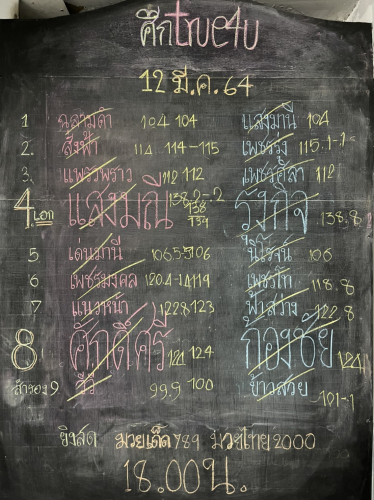 ศึกtrue4u
12 มี.ค. 64
1 ฉลามดำ 104 104 แสงมานี 104
2. สิงห์ฟ้า 114 114-115 เพชรรุ่ง 115.1-1
3. แพรวพราว 112 112 เพชรศิลา 112
4.เอก แสงมณี 138.2-.2 138 139 รุ่งกิจ 138.8
5 เด่นมานี 106.5 106 นิโรจน์ 106
6 เพชรมงคล 120.4-1 119 เพชรโท 118.8
7 แนวหน้า 122.8 123 ฟ้าสว่าง 122.8
8 ศักดิ์ศรี 124 124 ก้องชัย 124
สำรอง 9 สีวิ 99.9-100 ข้าวสวย 101-1
ยิงสด มวยเด็ด 789 มวยไทย2000
18.00น.